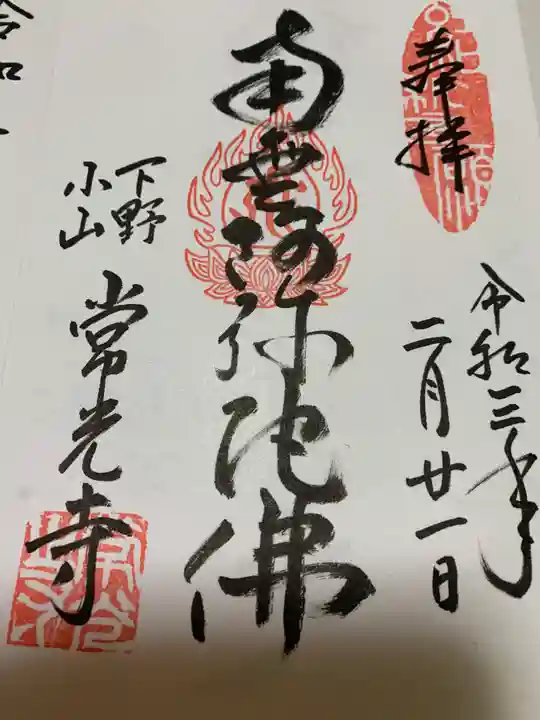 奉拝
令和三年
二月廿一日
南無阿弥陀佛
下野
小山
常光寺
令和